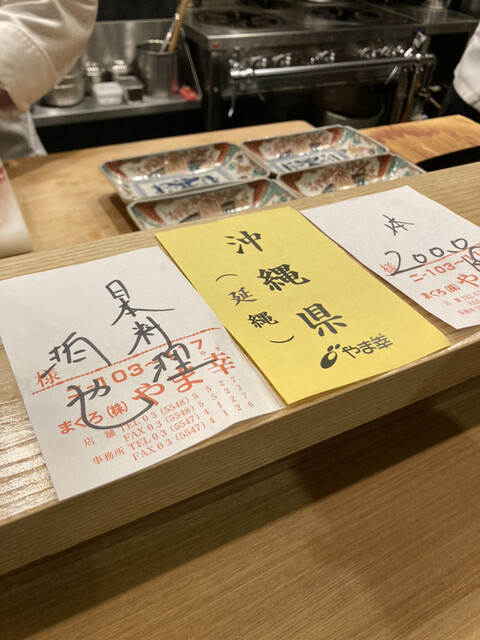 日本料理
様
二-103-17
まぐろ(株)やま幸
店舗 TEL 03 (5548)
FAX 03 (5548)
事務所 TEL 03 (5547)
FAX 03 (5547)
沖縄県
(延縄)
やま幸
本
様
2000
二-103-1
まぐろ(株)や